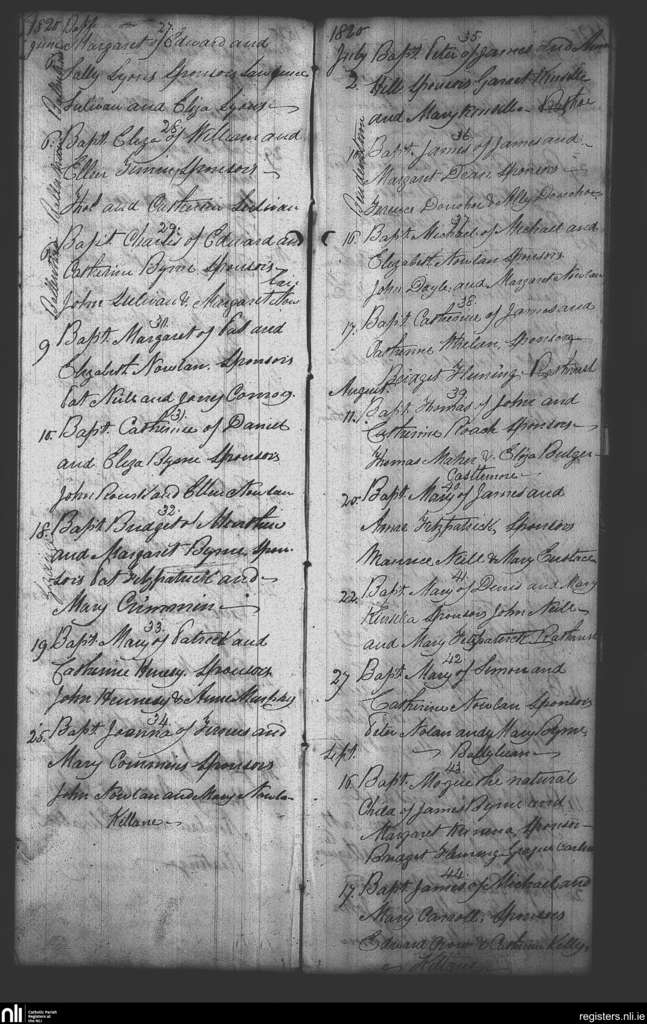 1820 Bapt 27
June Margaret of Edward and
6 Sally Lyons Sponsors Lawrence
Sulivan and Eliza Lyons
28
6. Bapt Eliza of William and
Ellen Sponsors
Thos and Catherine Sulivan
29
Bapt Charles of Edward and
Catherine Byrne Sponsors
John Sulivan & Margaret
30
9 Bapt. Margaret of Pat and
Elizabeth Nowlan. Sponsors
Pat Neill and
31
10. Bapt. Catherine of Daniel
and Eliza Byrne Sponsors
John and Ellen Nowlan
32
18. Bapt Bridget of
and Margaret Byrne, Spon-
sors Pat Fitzpatrick and
Mary Crimmin
33
19 Bapt. Mary of Patrick and
Catherine Sponsors
John Hennesy & Anne Murphy
34
25. Bapt Joanna of and
Mary Commins Sponsors
John Nowlan and Mary Nowlan
Killane
1820
35
July Bapt. Peter of James and
2 Hill Sponsors Garret
and Mary
36
Bapt. James of James and
Margaret Dean Sponsors
Terence Donohoe & Ally Donohoe
37
16. Bapt Michael of Michael and
Elizabeth Nowlan Sponsors
John Doyle and Margaret Nowlan
38
17. Bapt Catherine of James and
Catherine Whelan, Sponsors
Bridget Fleming
August 39
11. Bapt. Thomas of John and
Catherine Roach Sponsors
Thomas Maher & Eliza Bulger
Castlemore
40
20. Bapt. Mary of James and
Anne Fitzpatrick, Sponsors
Maurice Neill & Mary Eustace
41
22. Bapt Mary of Denis and Mary
Kinsela Sponsors John Neill
and Mary Fitzpatrick
42
27 Bapt. Mary of Simon and
Catherine Nowlan Sponsors
Peter Nolan and Mary Byrne
Sept.
43
16. Bapt. Mogue the natural
Child of James Byrne and
Margaret Sponsor
Bridget Fleming
44
17. Bapt James of Michael and
Mary Carroll, Sponsors
Edward & Catherine Kelly.
nli Catholic Parish
Registers at
the NLI
registers.nli.ie